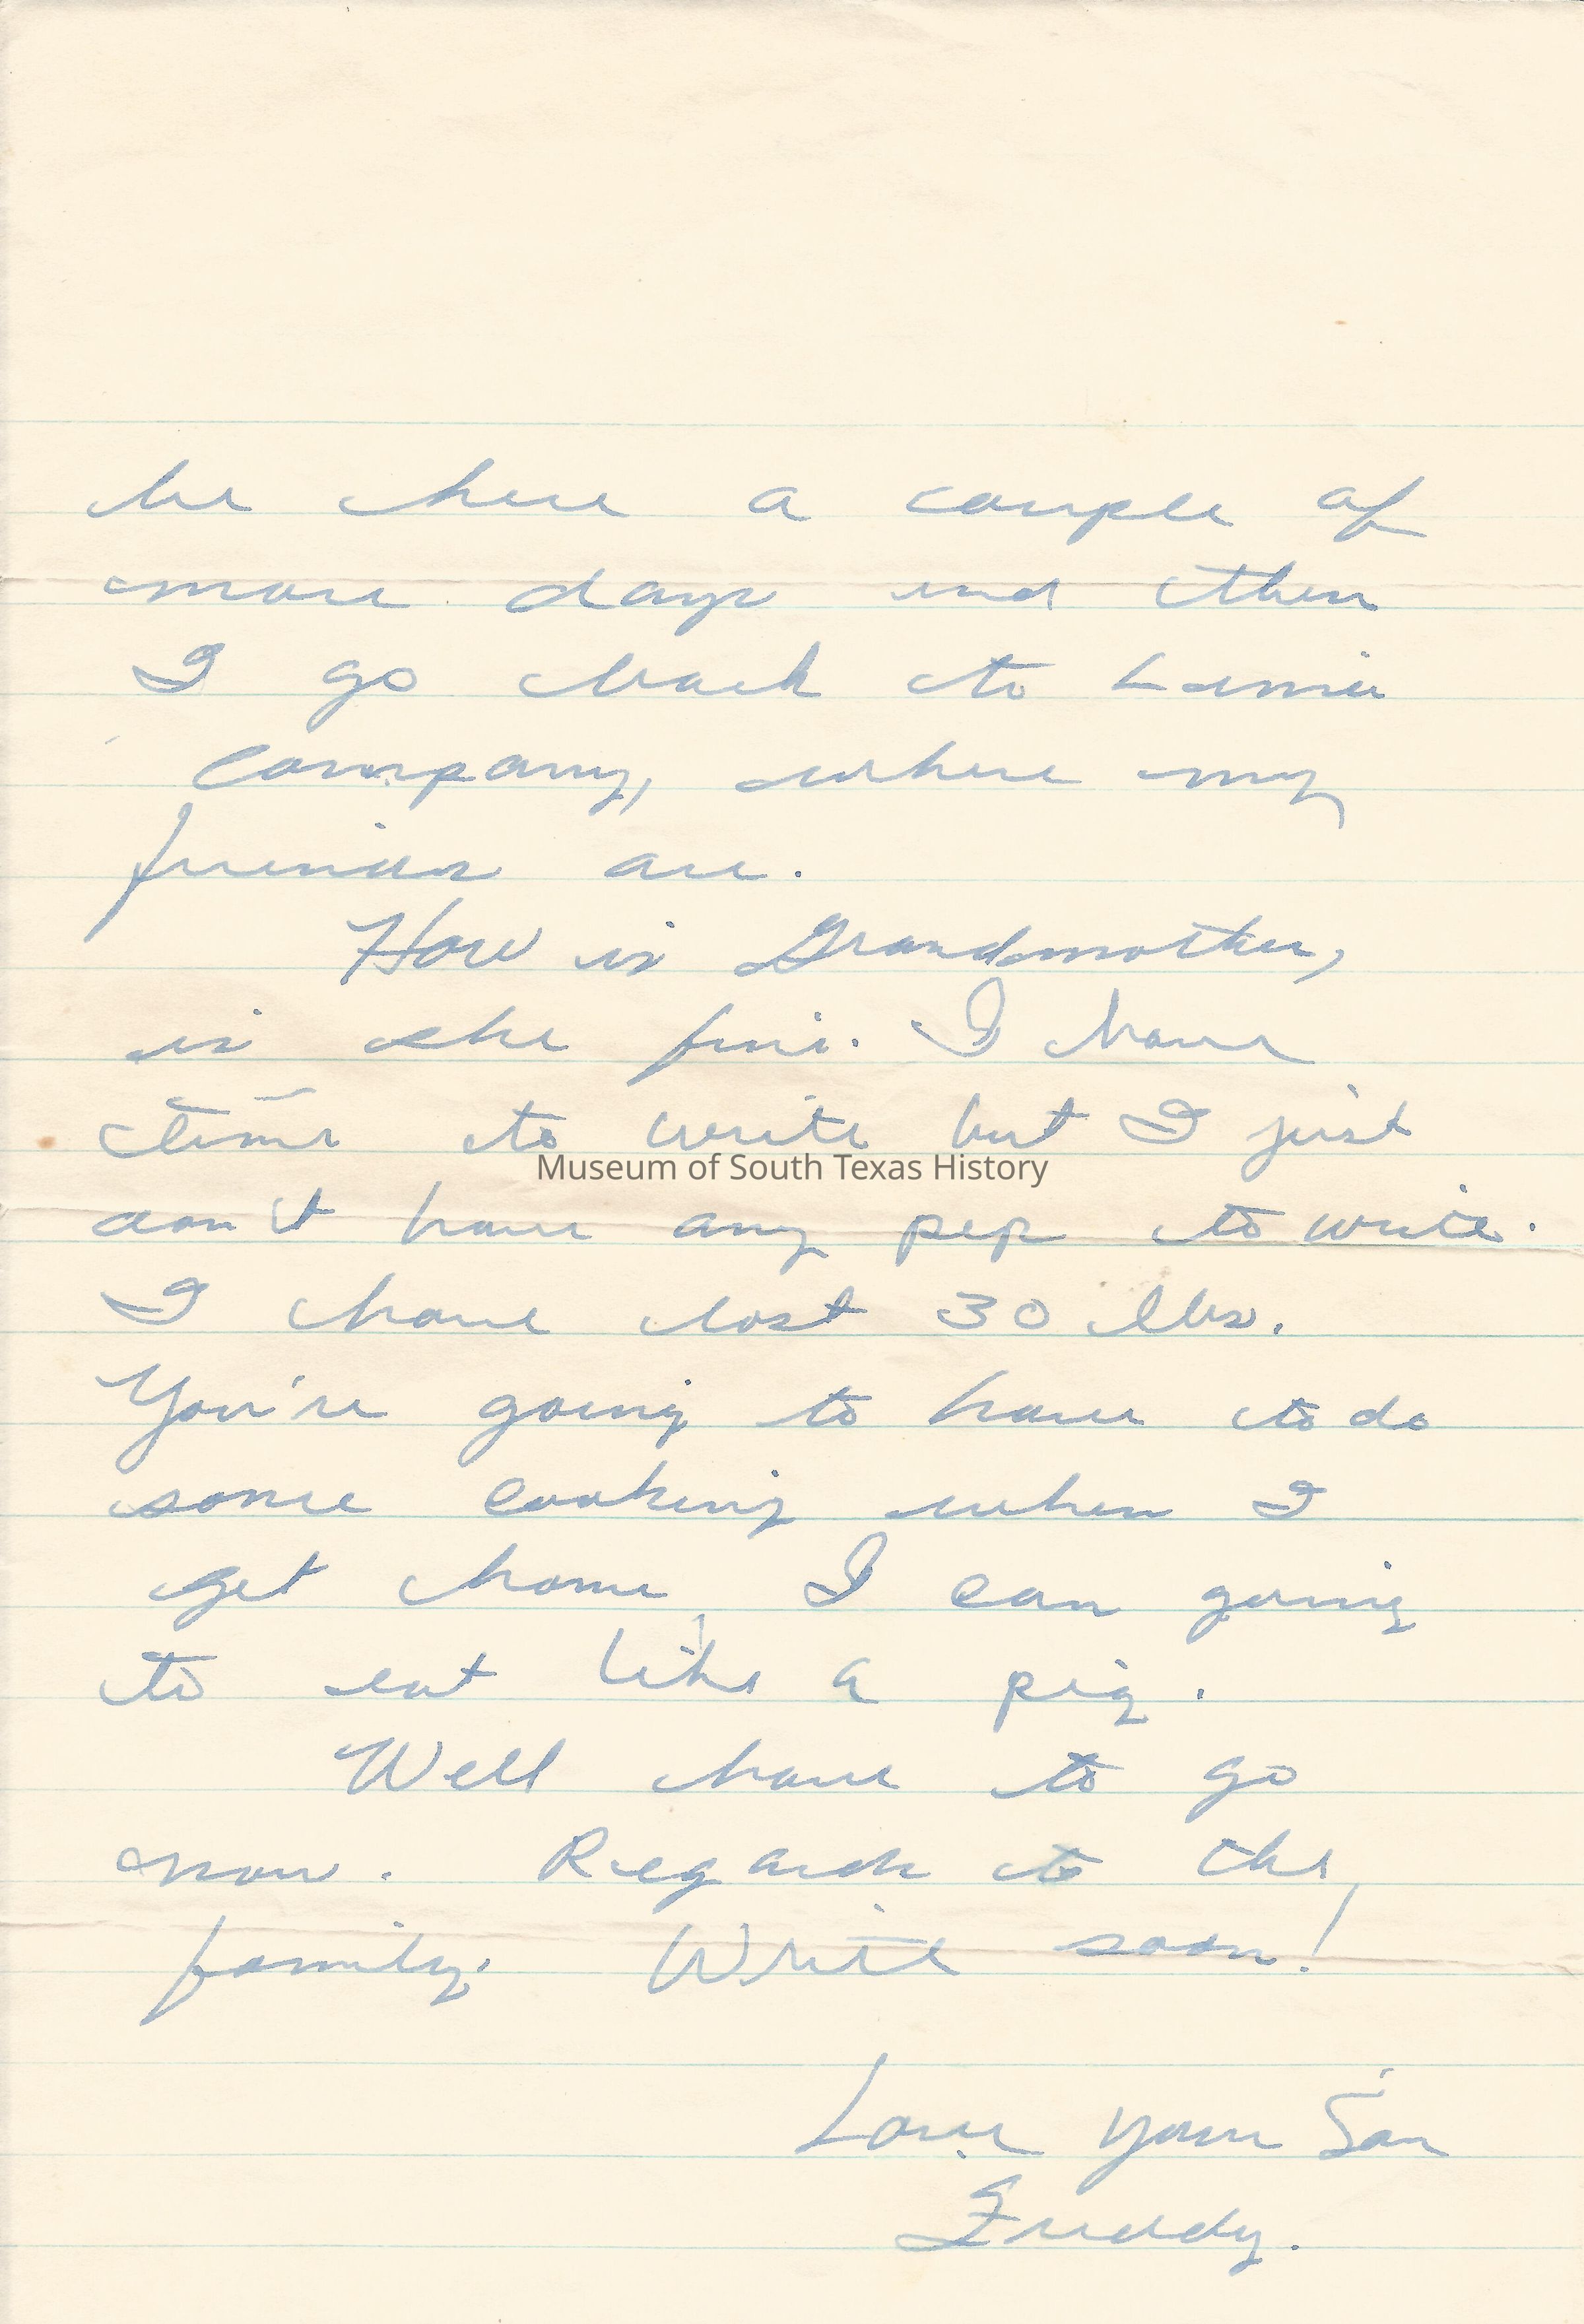 be here a couple of
more days and then
I go back to Lima
company, where my
friends are.
How is Grandmother,
is she fine. I have
time to write but I just
don't have any pep to write.
I have lost 30 lbs.
You're going to have to do
some cooking when I
get home, I can going
to eat like a pig.
Well have to go
now. Regards to the
family. Write soon!
Love your Son
Freddy.
Museum of South Texas History